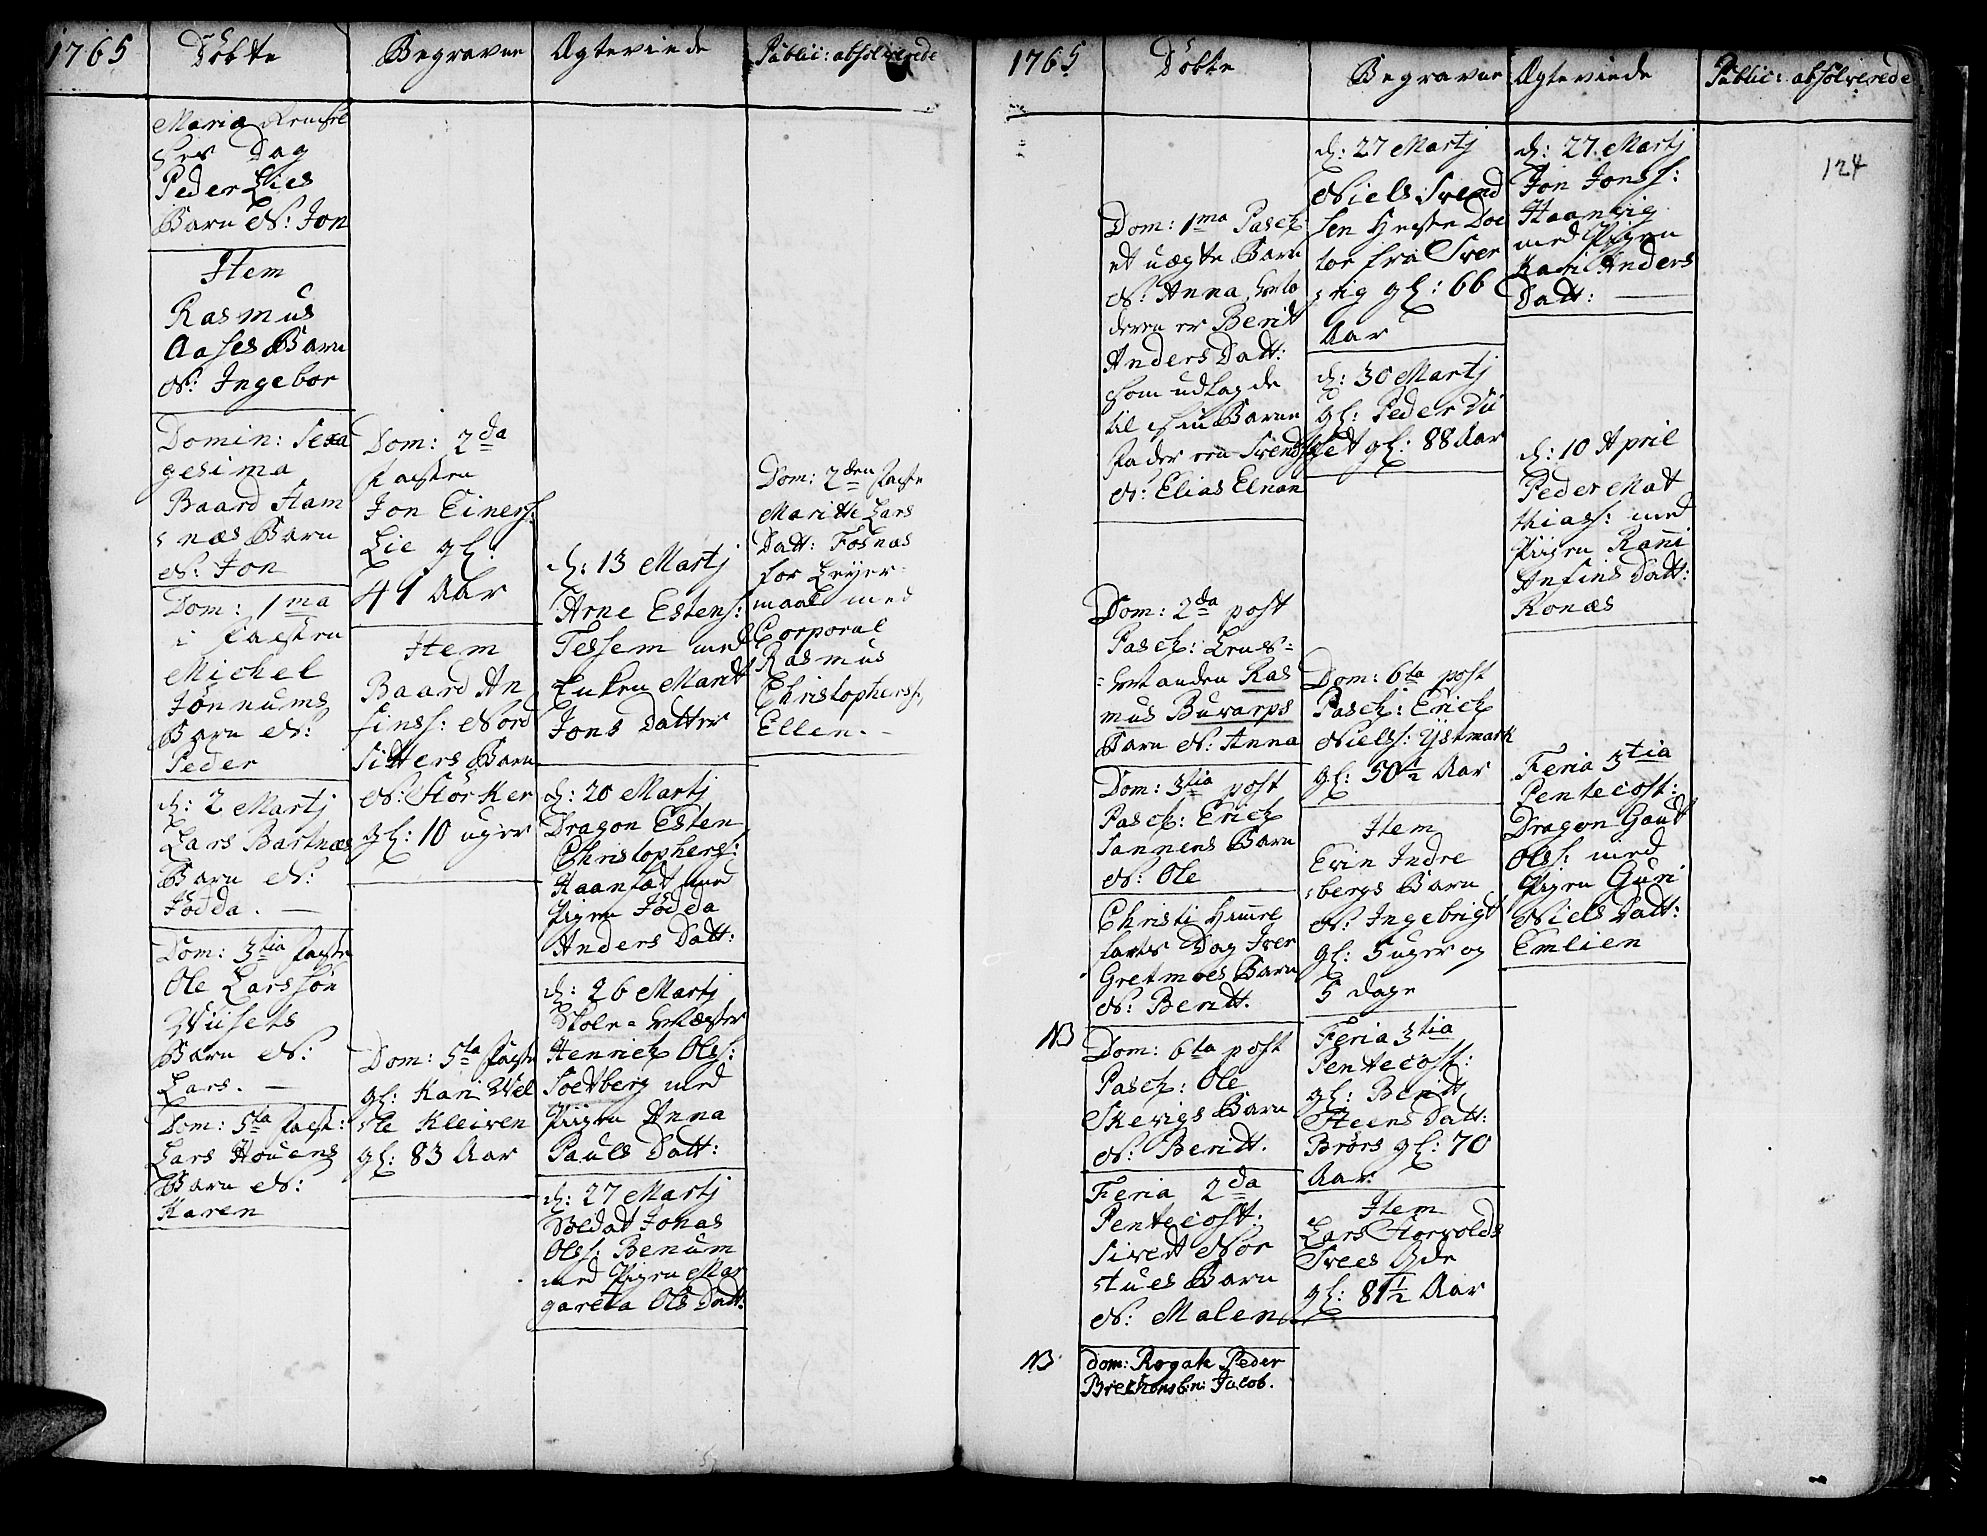 1765
Döbte
Mariæ Renselses Dag
Peder Lies
Barn N: Jon
Item
Rasmus
Aases Barn
N: Ingebor
Domin: Sexa
gesima
Baard Ham
næs Barn
N: Jon
Dom: 1ma
i Fasten
Michel
Jönnums
Barn N:
Peder
d: 2 Martj
Lars Bartnæs
Barn N:
Jödda. —
Dom: 3tia Faste
Ole Larssön
Wiisets
Barn N:
Lars. —
Dom: 5ta Fast:
Lars Houens
Barn N:
Karen
Begravne
Dom: 2da
Fasten
Jon Einers:
Lie gl:
41 Aar
Item
Baard An
finss: Nord
Sitters Barn
N: Störker
gl: 10 uger
Dom: 5ta Faste
gl: Kari Wel
ste Kleiven
gl: 83 Aar
Ægteviede
d: 13 Martj
Arne Estens:
Tessem med
Enken Marit
Jons Datter
d: 20 Martj
Dragon Esten
Christophers:
Haanfæt med
Pigen Jödda
Anders Datt:
d: 26 Martj
Skole-Mæster
Henrich Olss:
Soetberg med
Piigen Anna
Pauls Datt:
d: 27 Martj
Soldat Jonas
Olss: Benum
med Pigen Mar
gareta Ols Datt:
Public: absolverede
Dom: 2den Faste
Maritte Lars
Datt: Fosnas
for Leyer
maal med
Corporal
Rasmus
Christophers:
Ellen. —
1765
Döbte
Dom: 1ma Pasch:
et uægte Barn
N: Anna, Mo
deren er Berit
Anders Datt:
som udlagde
til sin Barne
Fader en Svends
N: Elias Elnan
Dom: 2da post
Pasch: Lens=
=Manden Ras
mus Buvarps
Barn N: Anna
Dom: 3tia post
Pasch: Erich
Sannens Barn
N: Ole
Christi Himel
farts Dag Iver
Gretmoes Barn
N: Beridt.
NB
Dom: 6ta post
Pasch: Ole
Skevigs Barn
N: Beridt.
Feria 2da
Pentecost:
Sivert Nor
stues Barn
N: Malen
NB
Dom: Rogate Peder
Brechans b: n: Jacob.
Begravne
d: 27 Martj
Niels Svend
sen Heste Doc
tor fra Sver
rig gl: 66
Aar
d: 30 Martj
gl: Peder Du
fet gl: 88 Aar
Dom: 6ta post
Pasch: Erich
Nielss: Ystmark
gl: 50½ Aar
Item
Evin Indre
bergs Barn
N: Ingebrigt
gl: 5 uger og
5 dage
Feria 3tia
Pentecost:
gl: Beridt
Steens Datt:
Brørs gl: 70
Aar
Item
Lars Horvolds
Trees Øde
gl: 81½ Aar
Ægteviede
d: 27 Martj
Jon Jonss:
Haanvig
med Pigen
Kari Anders
Datt: —
d: 10 April
Peder Mat
thiass: med
Piigen Rani
Anfins Datt:
Ronæs
Feria 3tia
Pentecost:
Dragon Gaut
Olss: med
Pigen Guri
Niels Datt:
Emlien
Public: absolverede
124